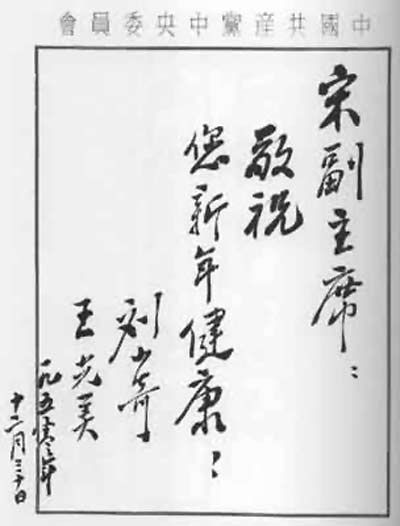 中國共産黨中央委員會
宋副主席：
敬祝
您新年健康！
刘少奇
王光美
十二月三十日